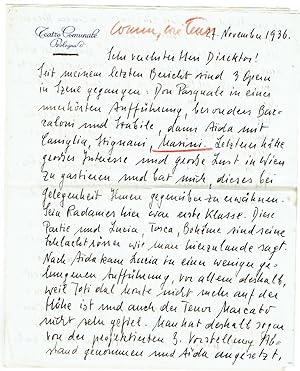 Teatro Comunale
Bologna
7. November 1936.
Sehr verehrter Herr Direktor!
Seit meinem letzten Bericht sind 3 Opern
in Szene gegangen: Don Pasquale in einer
unerhörten Aufführung, besonders Bac-
caloni und Stabile, dann Aida mit
Caniglia, Stignani, Masini. Letzterer hätte
grosses Interesse und grosse Lust in Wien
zu gastieren und bat mich, dieses bei
Gelegenheit Ihnen gegenüber zu erwähnen.
Sein Radames hier war erste Klasse. Diese
Partie und Lucia, Tosca, Bohème sind seine
Schlachtrösser wie man hierzulande sagt.
Nach Aida kam Lucia in einer weniger ge-
lungenen Aufführung, vor allem deshalb,
weil Toti dal Monte nicht mehr auf der
Höhe ist und auch der Tenor Marcato
nicht sehr gefiel. Man hat deshalb sogar
von der projektierten 3. Vorstellung Ab-
stand genommen und Aida angesetzt,